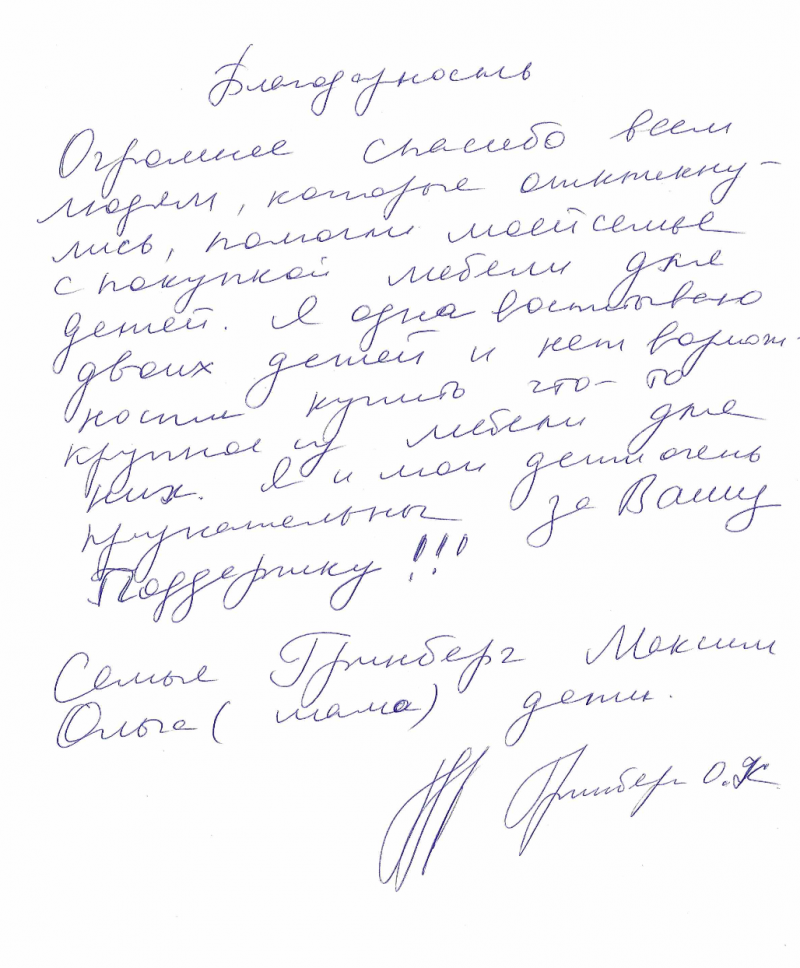 Благодарность
Огромное спасибо всем
людям, которые откликну-
лись, помогли моей семье
с покупкой мебели для
детей. Я одна воспитываю
двоих детей и нет возмож-
ности купить что-то
крупное из мебели для
них. Я и мои дети очень
признательны за Вашу
Поддержку!!!
Семья Гринберг Максим
Ольга (мама) дети.
Гринберг О.К